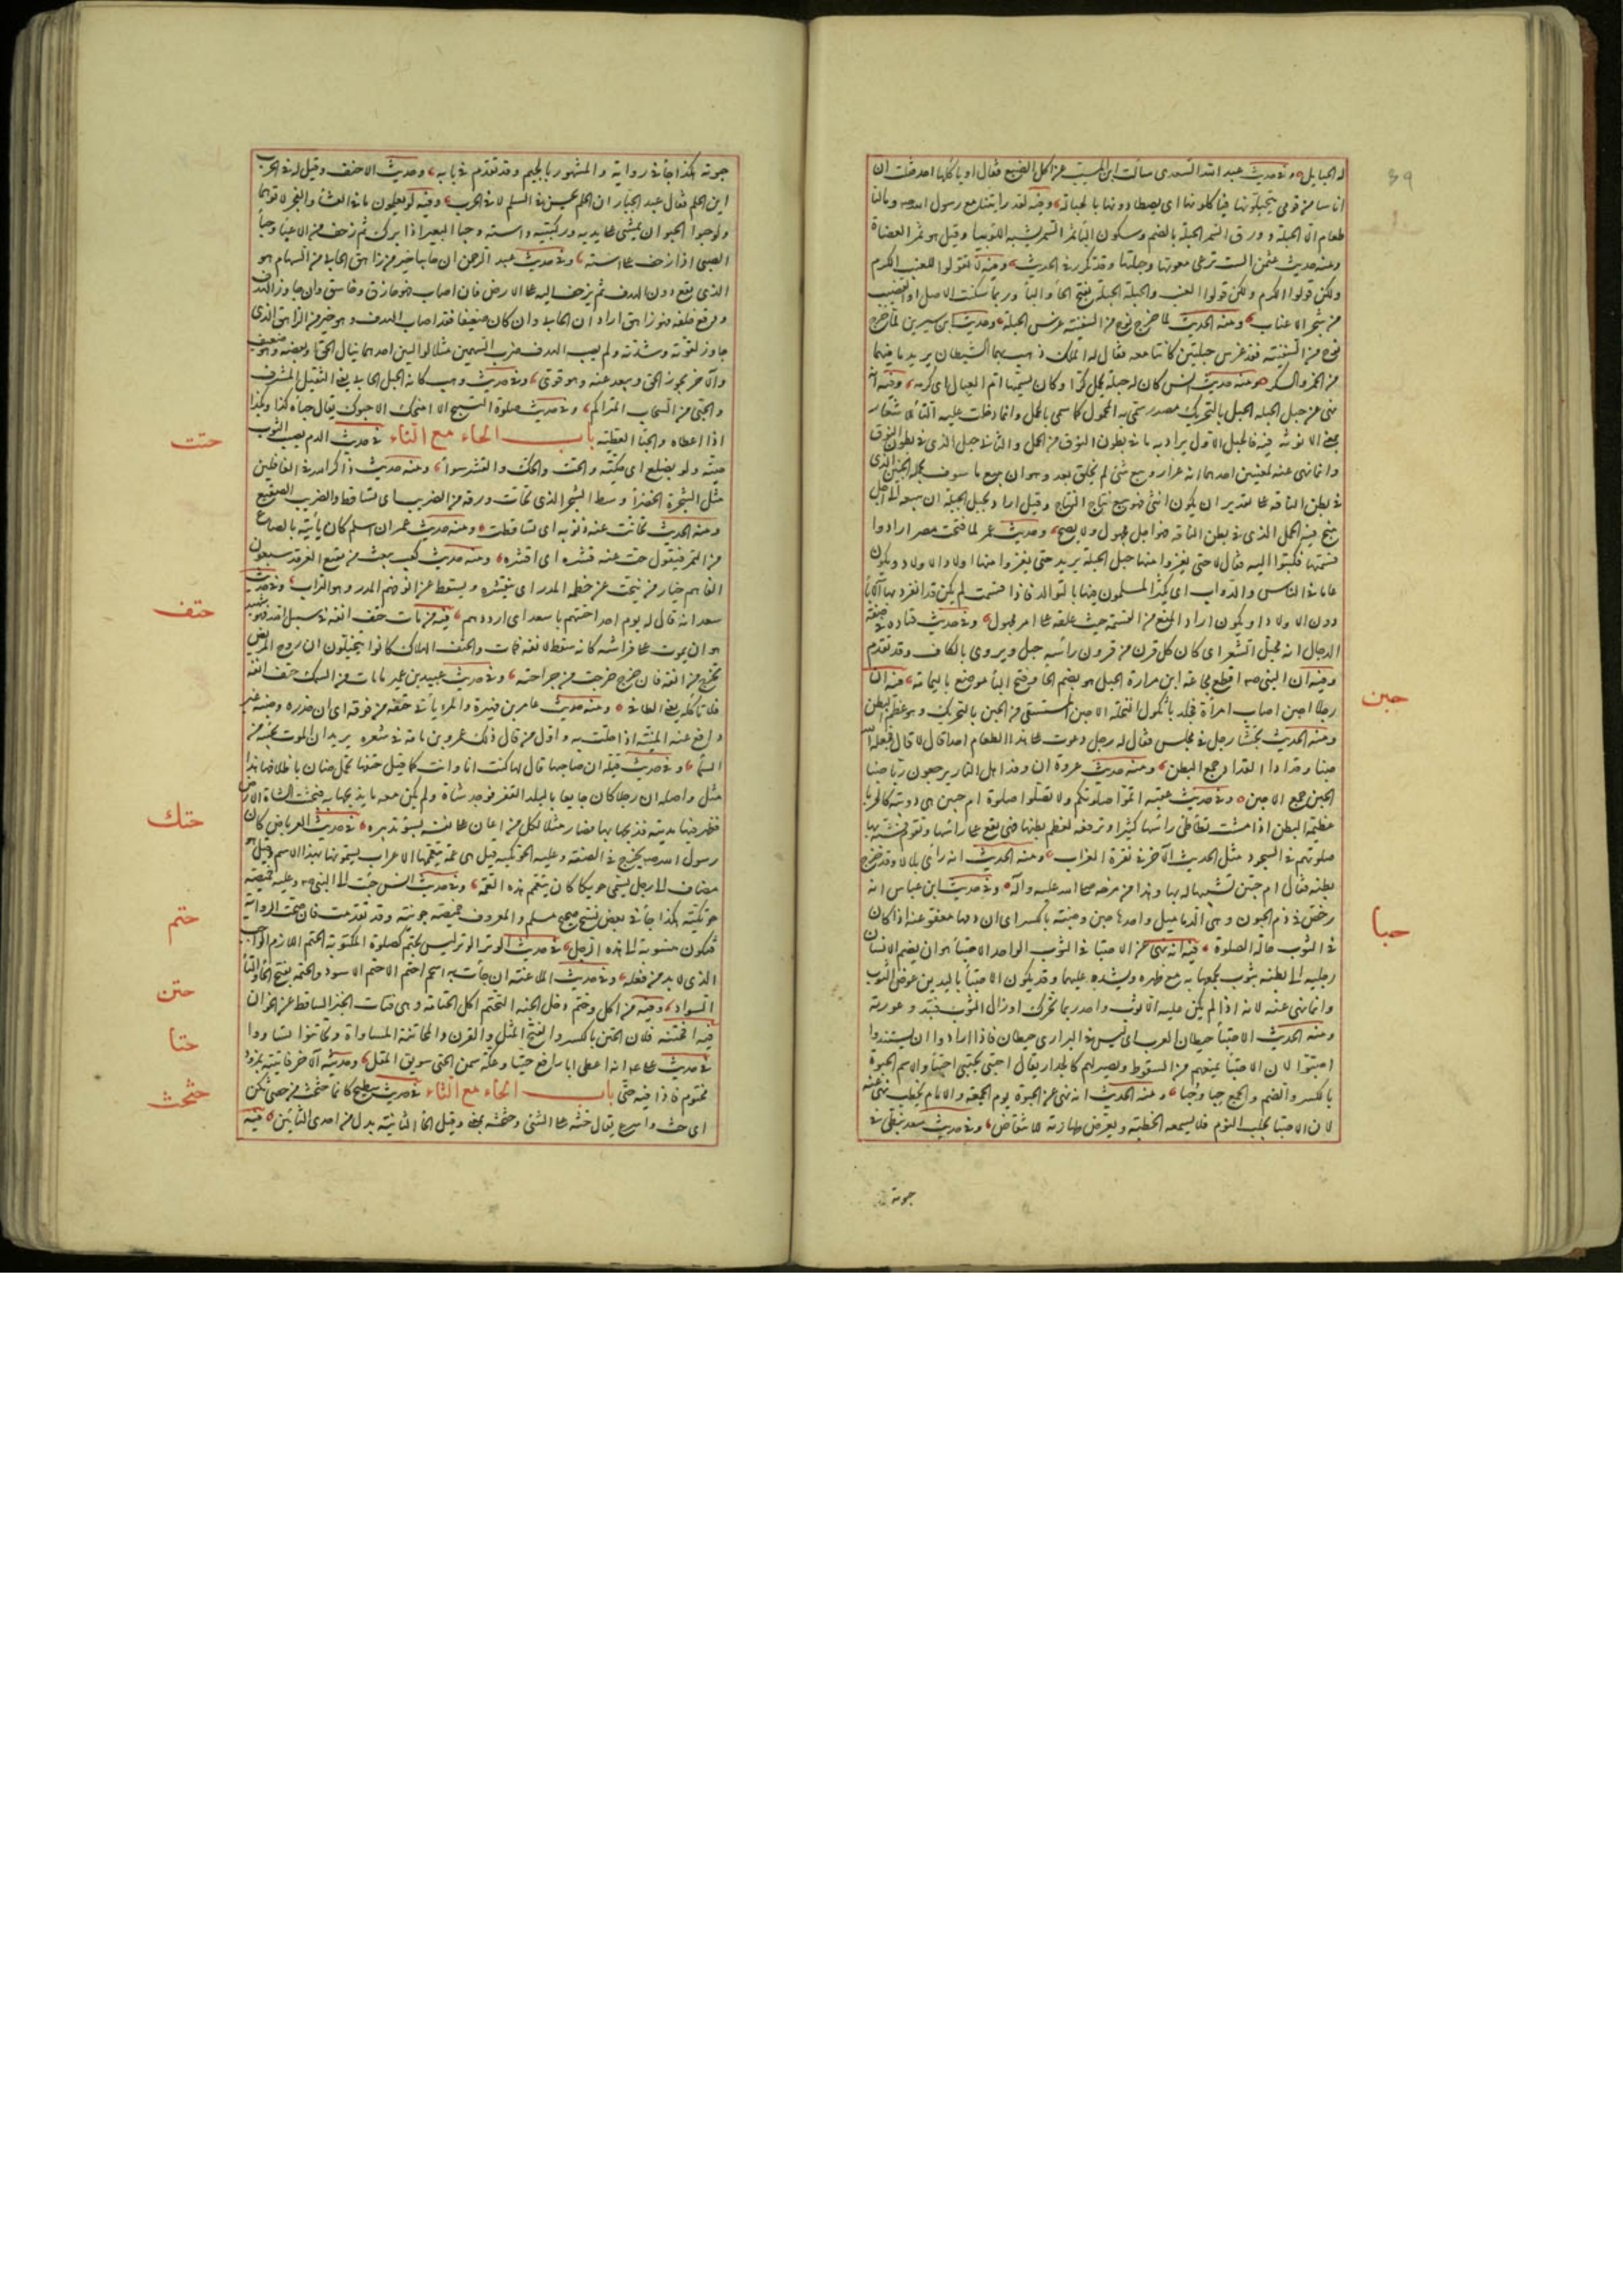 له الحبايل وفى حديث عبد الله السعدى سالت ابن المسيب عن اكل الضبع فقال او ياكلها احد فقلت ان
اناسا من قومى يتحبلونها فياكلونها اى يصطادونها بالحبالة وفيه لقد رايتنا مع رسول الله وما لنا
طعام الا الحبلة وورق السمر الحبلة بالضم وسكون الباء ثمر السمر يشبه اللوبيا وقيل هو ثمر العضاة
ومنه حديث عثمن الست ترعى معوتها وحبلتها وقد تكرر فى الحديث ومنه لا تقولوا للعنب الكرم
ولكن قولوا العنب والحبلة الحبلة بفتح الحاء والباء وربما سكنت الاصل او القضيب
من شجر الاعناب ومنه الحديث لما خرج نوح من السفينة غرس الحبلة وحديث ابن سيرين لما خرج
نوح من السفينة فقد غرس حبلتين كانتا معه فقال له الملك ذهب بهما الشيطان يريد ما فيهما
من الخمر والسكر ومنه حديث انس كان له حبلة تحمل كرا وكان يسميها ام العيال اى كرمة وفيه انه
نهى عن حبل الحبلة الحبل بالتحريك مصدر سمى به المحمول كما سمى بالحمل وانما دخلت عليه التاء للاشعار
بمعنى الانوثة فيه فالحبل الاول يراد به ما فى بطون النوق من الحمل والثانى حبل الذى فى بطون النوق
وانما نهى عنه لمعنيين احدهما انه غرر وبيع شئ لم يخلق بعد وهو ان يبيع ما سوف يحمله الجنين الذى
فى بطن الناقة على تقدير ان يكون انثى فهو بيع نتاج النتاج وقيل اراد بحبل الحبلة ان يبيعه الى اجل
ينتج فيه الحمل الذى فى بطن الناقة فهو اجل مجهول ولا يصح وحديث عمر لما فتحت مصر ارادوا
قسمتها فكتبوا اليه فقال لا حتى يغزوا منها حبل الحبلة يريد حتى يغزوا منها اولاد الاولاد ويكون
عاما فى الناس والدواب اى يكثر المسلمون فيها بالتوالد فاذا قسمت لم يكن قد انفرد بها الاباء
دون الاولاد او يكون اراد المنع من القسمة حيث علقه على امر مجهول وفى حديث قتادة فى صفة
الدجال انه محبل الشعر اى كان كل قرن من قرون راسه حبل ويروى بالكاف وقد تقدم
وفيه ان النبى اقطع مجاعة ابن مرارة الحبل هو بضم الحاء وفتح الباء موضع باليمامة فيه ان
رجلا احبن اصاب امراة فجلد باثكول النخلة الاحبن المستسقى من الحبن بالتحريك وهو عظم البطن
ومنه الحديث تجشا رجل فى مجلس فقال له رجل دعوت على هذا الطعام احدا قال لا قال فجعله الله
حبنا وقدادا القداد وجع البطن ومنه حديث عروة ان وفد اهل النار يرجعون زبا حبنا
الحبن جمع الاحبن وفى حديث عقبة اتموا صلوتكم ولا تصلوا صلوة ام حبين هى دويبة كالحرباء
عظيمة البطن اذا مشت تطاطئ راسها كثيرا وترفعه لعظم بطنها فهى تقع على راسها وتقوم فشبه بها
صلوتهم فى السجود مثل الحديث الاخر فى نقرة الغراب ومنه الحديث انه راى بلالا وقد خرج
بطنه فقال ام حبين تشبيها له بها وهذا من مزحه صلى الله عليه واله وفى حديث ابن عباس انه
رخص فى دم الحبون وهى الدماميل واحدها حبن وحبنة بالكسر اى ان دمها معفو عنه اذا كان
فى الثوب حالة الصلوة فيه انه نهى عن الاحتبا فى الثوب الواحد الاحتبا هو ان يضم الانسان
رجليه الى بطنه بثوب يجمعها به مع ظهره ويشده عليها وقد يكون الاحتبا باليدين عوض الثوب
وانما نهى عنه لانه اذا لم يكن عليه الا ثوب واحد ربما تحرك او زال الثوب فتبدو عورته
ومنه الحديث الاحتبا حيطان العرب اى ليس فى البرارى حيطان فاذا ارادوا ان يستندوا
احتبوا لان الاحتبا يمنعهم من السقوط ويصير لهم كالجدار يقال احتبى يحتبى احتباء والاسم الحبوة
بالكسر والضم والجمع حبا وحبا ومنه الحديث انه نهى عن الحبوة يوم الجمعة والامام يخطب نهى عنه
لان الاحتبا يجلب النوم فلا يسمعه الخطبة ويعرض طهارته للانتقاض وفى حديث سعد نبطى فى
حبن
حبا
39
جوته
جوته هكذا جاء فى رواية والمشهور بالجيم وقد تقدم فى بابه وحديث الاحنف وقيل له فى الحرب
اين الحلم فقال عند الحبا اراد ان الحلم يحسن فى السلم لا فى الحرب وفيه لو يعلمون ما فى العشاء والفجر لاتوهما
ولو حبوا الحبو ان يمشى على يديه وركبتيه واسته وحبا البعير اذا برك ثم زحف من الاعياء وحبا
الصبى اذا زحف على استه وفى حديث عبد الرحمن ان حابيا خير من زاهق الحابى من السهام هو
الذى يقع دون الهدف ثم يزحف اليه على الارض فان اصاب فهو خازق وخاسق وان جاوز الهدف
ووقع خلفه فهو زاهق اراد ان الحابى وان كان ضعيفا فقد اصاب الهدف وهو خير من الزاهق الذى
جاوزه لقوته وشدته ولم يصب الهدف ضرب السهمين مثلا لواليين احدهما ينال الحق او بعضه وهو ضعيف
والاخر يجوز الحق ويبعد عنه وهو قوى وفى حديث وهب كانه الجبل الحابى يعنى الثقيل المشرف
والحبى من السحاب المتراكم وفى حديث صلوة التسبيح الا امنحك الا احبوك يقال حباه كذا وبكذا
اذا اعطاه والحبا العطية باب الحاء مع التاء فى حديث الدم يصيب الثوب
حتيه ولو بضلع اى حكيه والحت والحك والقشر سواء ومنه حديث ذاكر الله فى الغافلين
مثل الشجرة الخضراء وسط الشجر الذى تحات ورقه من الضريب اى تساقط والضريب الصقيع
ومنه الحديث تحاتت عنه ذنوبه اى تساقطت ومنه حديث عمر ان اسلم كان ياتيه بالصاع
من التمر فيقول حت عنه قشره اى اقشره ومنه حديث كعب يبعث من بقيع الغرقد سبعون
الفا هم خيار من ينحت عن خطمه المدر اى ينقشر ويسقط عن انوفهم المدر وهو التراب وفى حديث
سعد انه قال له يوم احد احتتهم يا سعد اى ارددهم فيه من مات حتف انفه فى سبيل الله فهو شهيد
هو ان يموت على فراشه كانه سقط لانفه فمات والحتف الهلاك كانوا يتخيلون ان روح المريض
تخرج من انفه فان جرح خرجت من جراحته وفى حديث عبيد بن عمير ما مات من السمك حتف انفه
فلا تاكله يعنى الطافى ومنه حديث عامر بن فهيرة والمرء ياتى حتفه من فوقه اى ان حذره وجبنه غير
دافع عنه المنية اذا حلت به واول من قال ذلك عمرو بن مامة فى شعره يريد ان الموت يجيئه من
السماء وفى حديث قيلة ان صاحبها قال لها كنت انا وانت كما قيل حتفها تحمل ضان باظلافها هذا
مثل واصله ان رجلا كان جايعا بالبلد القفر فوجد شاة ولم يكن معه ما يذبحها به فبحثت الشاة الارض
فظهر فيها مدية فذبحها بها فصار مثلا لكل من اعان على نفسه بسوء تدبيره فى حديث العرباض كان
رسول الله يخرج فى الصفة وعليه الحوتكية قيل هى عمة يتعممها الاعراب يسمونها بهذا الاسم وقيل هو
مضاف الى رجل يسمى حوتكا كان يتعمم هذه العمة وفى حديث انس جئت الى النبى وعليه خميصة
حوتكية هكذا جاء فى بعض نسخ صحيح مسلم والمعروف خميصة جونية وقد تقدمت فان صحت الرواية
فتكون منسوبة الى هذه الرجل فى حديث الوتر الوتر ليس بحتم كصلوة المكتوبة الحتم اللازم الواجب
الذى لا بد من فعله وفى حديث الملاعنة ان جاءت به اسحم احتم الاحتم الاسود والحتمة بفتح الحاء والتاء
السواد وفيه من اكل وتحتم دخل الجنة التحتم اكل الحتامة وهى فتات الخبز الساقط عن الخوان
فيه افحتنه فلان الحتن بالكسر والفتح المثل والقرن والمحاتنة المساواة وتحاتنوا تساووا
فى حديث على انه اعطى ابا رافع حتيا وعكة سمن الحتى سويق المقل وحديثه الاخر فاتيته بمزود
مختوم فاذا فيه حتى باب الحاء مع الثاء فى حديث سطيح كانما حثحث من حضنى ثكن
اى حث واسرع يقال حثه على الشئ وحثحثه بمعنى وقيل الحاء الثانية بدل من احدى الثائين فيه
حتت
حتف
حتك
حتم
حتن
حتا
حثحث